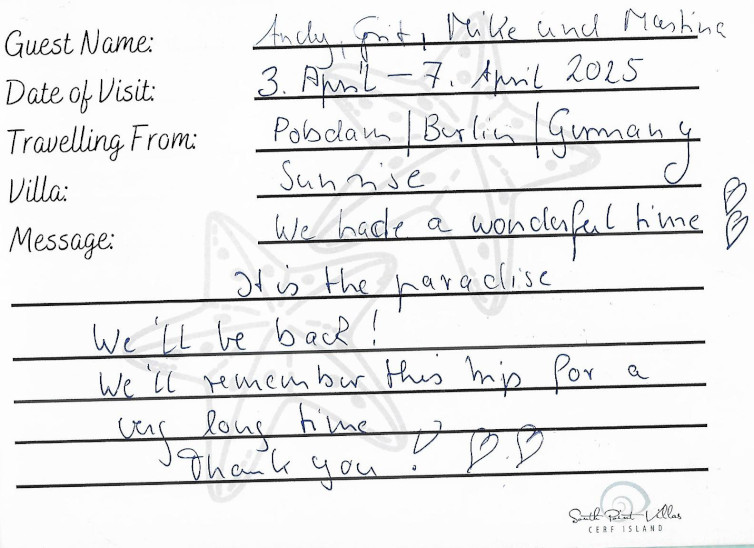 Guest Name: Andy, Grit, Mike und Martina
Date of Visit: 3. April – 7. April 2025
Travelling From: Potsdam | Berlin | Germany
Villa: Sunrise
Message: We hade a wonderful time
It is the paradise
We'll be back!
We'll remember this trip for a
very long time
Thank you!
South Point Villas
CERF ISLAND